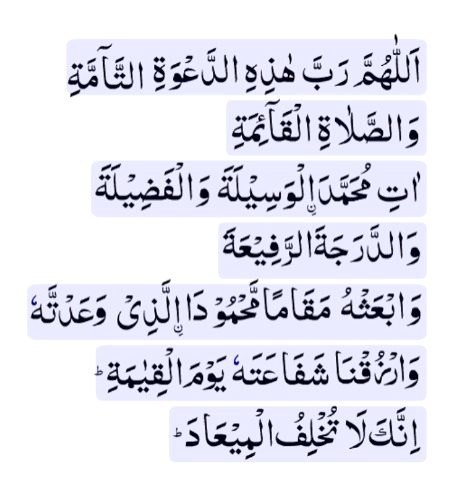 اَللّٰهُمَّ رَبَّ هٰذِهِ الدَّعْوَةِ التَّآمَّةِ
وَالصَّلَاةِ الْقَآئِمَةِ
اٰتِ مُحَمَّدَاِ۟لْوَسِيْلَةَ وَالْفَضِيْلَةَ
وَالدَّرَجَةَ الرَّفِيْعَةَ
وَابْعَثْهُ مَقَامًا مَّحْمُوْدَاِ۟لَّذِىْ وَعَدْتَّهٗ
وَارْزُقْنَا شَفَاعَتَهٗ يَوْمَ الْقِيٰمَةِ ؕ
اِنَّكَ لَا تُخْلِفُ الْمِيْعَادَ ؕ